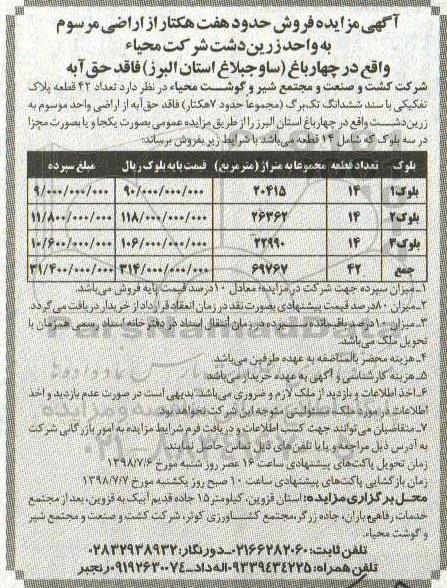 آگهی مزایده فروش حدود هفت هکتار از اراضی مرسوم
به واحد زرین دشت شرکت محیاء
واقع در چهارباغ (ساوجبلاغ استان البرز) فاقد حق آبه
شرکت کشت و صنعت و مجتمع شیر و گوشت محیاء در نظر دارد تعداد ۴۲ قطعه پلاک
تفکیکی با سند ششدانگ تک برگ (مجموعا حدود ۷هکتار) فاقد حق آبه از اراضی واحد موسوم به
زرین دشت واقع در چهارباغ استان البرز را از طریق مزایده عمومی بصورت یکجا و یا بصورت مجزا
در سه بلوک که شامل ۱۴ قطعه می‌باشد با شرایط زیر بفروش برساند:
بلوک تعداد قطعه مجموعا به متراژ (متر مربع) قیمت پایه بلوک ریال مبلغ سپرده
بلوک۱ ۱۴ ۲۰۴۱۵ ۹۰/۰۰۰/۰۰۰/۰۰۰ ۹/۰۰۰/۰۰۰/۰۰۰
بلوک۲ ۱۴ ۲۶۳۶۲ ۱۱۸/۰۰۰/۰۰۰/۰۰۰ ۱۱/۸۰۰/۰۰۰/۰۰۰
بلوک۳ ۱۴ ۲۲۹۹۰ ۱۰۶/۰۰۰/۰۰۰/۰۰۰ ۱۰/۶۰۰/۰۰۰/۰۰۰
جمع ۴۲ ۶۹۷۶۷ ۳۱۴/۰۰۰/۰۰۰/۰۰۰ ۳۱/۴۰۰/۰۰۰/۰۰۰
۱-میزان سپرده جهت شرکت در مزایده؛ معادل ۱۰درصد قیمت پایه فروش می‌باشد.
۲-میزان ۸۰درصد قیمت پیشنهادی بصورت نقد در زمان انعقاد قرارداد از خریدار دریافت می گردد.
۳-میزان ۱۰درصد باقیمانده سپرده در زمان انتقال اسناد در دفترخانه اسناد رسمی همزمان با
تحویل ملک می‌باشد.
۴-هزینه محضر بالمناصفه به عهده طرفین می‌باشد.
۵-هزینه کارشناسی و آگهی به عهده خریدار می‌باشد.
۶-اخذ اطلاعات و بازدید از ملک لازم و ضروری می‌باشد بدیهی است در صورت عدم بازدید و اخذ
اطلاعات در مورد ملک مسئولیتی متوجه این شرکت نخواهد بود.
۷-متقاضیان می‌توانند جهت کسب اطلاعات و دریافت فرم شرایط مزایده به امور بازرگانی شرکت
به آدرس ذیل مراجعه و یا با تلفن‌های ذیل تماس حاصل نمایند.
زمان تحویل پاکت‌های پیشنهادی ساعت ۱۶ عصر روز شنبه مورخ ۱۳۹۸/۷/۶
زمان بازگشایی پاکت‌های پیشنهادی ساعت ۱۰ صبح روز یکشنبه مورخ ۱۳۹۸/۷/۷
محل برگزاری مزایده: استان قزوین، کیلومتر ۱۵ جاده قدیم آبیک به قزوین، بعد از مجتمع
خدمات رفاهی باران، جاده زرگر، مجتمع کشاورزی کوثر، شرکت کشت و صنعت و مجتمع شیر
و گوشت محیاء.
تلفن ثابت: ۰۲۱۶۶۲۸۲۰۶۰-دورنگار: ۰۲۸۳۲۹۳۸۹۳۲
تلفن همراه: ۰۹۳۳۹۴۳۴۲۲۵ اله داد-۰۹۱۹۲۶۳۰۰۷۴ رنجبر